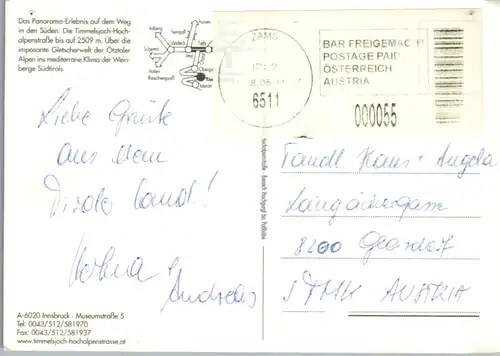 Das Panorama-Erlebnis auf dem Weg
in den Süden: Die Timmelsjoch-Hoch-
alpenstraße bis auf 2509 m. Über die
imposante Gletscherwelt der Ötztaler
Alpen ins mediterrane Klima der Wein-
berge Südtirols.
ZAMS
6511
BAR FREIGEMACHT
POSTAGE PAID
ÖSTERREICH
AUSTRIA
000055
Liebe Grüße
aus dem
Tiroler Land!
Andreas
Tandl Hans + Angela
8200 Gleisdorf
STMK AUSTRIA
A-6020 Innsbruck · Museumstraße 5
Tel: 0043/512/581970
Fax: 0043/512/581937
www.timmelsjoch-hochalpenstrasse.at